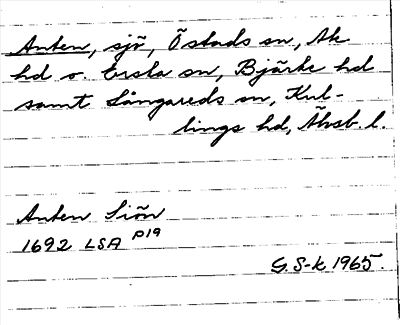 Anten, sjö, Östads sn, Ale
hd o. Ersta sn, Bjärke hd
samt Långareds sn, Kul-
lings hd, Älvsb. l.
Anten Siön
1692 LSA P19
G. S-k 1965.